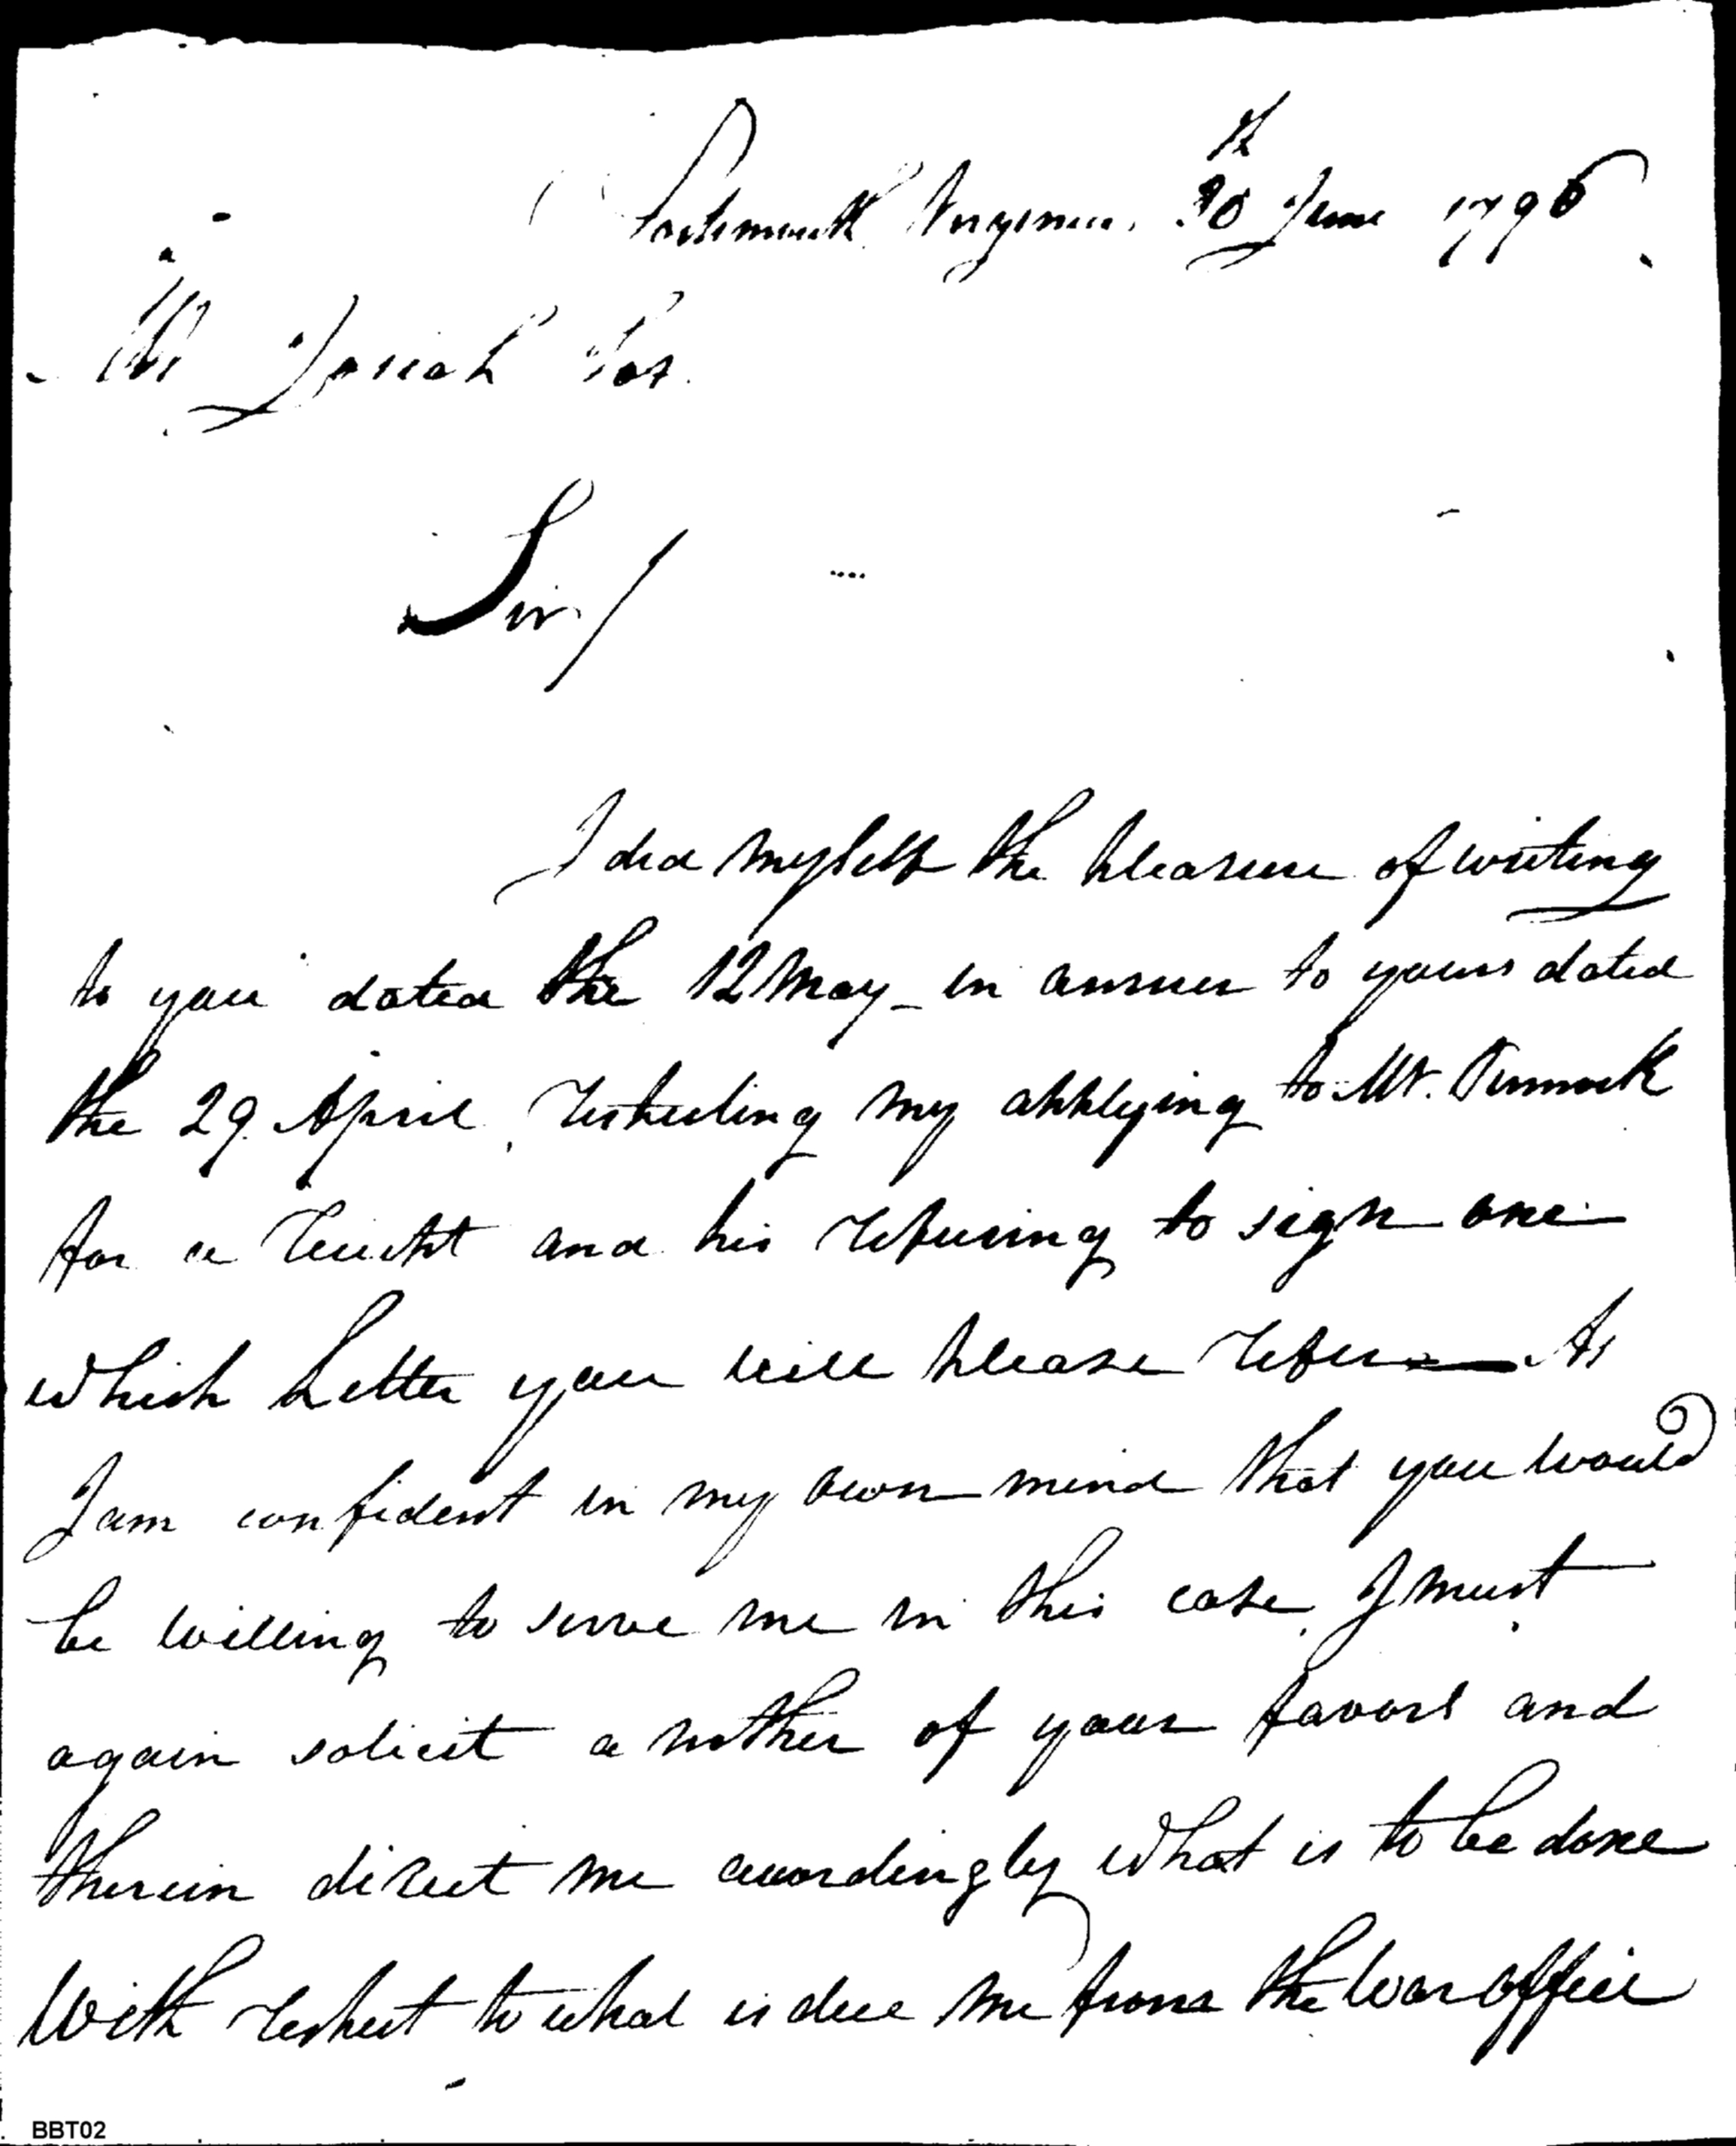 Portsmouth Virginia, 30th June 1796
Mr Josiah Fox
Sir/
I did myself the pleasure of writing
to you dated the 12 May - in answer to yours dated
the 29 April, respecting my applying to Mr.
for a receipt and his refusing to sign one
which Letter you will please refer — As
I am confident in my own mind that you would
be willing to serve me in this case, I must
again solicit a nother of your favors and
therein direct me accordingly what is to be done
With respect to what is due me from the War office
BBT02